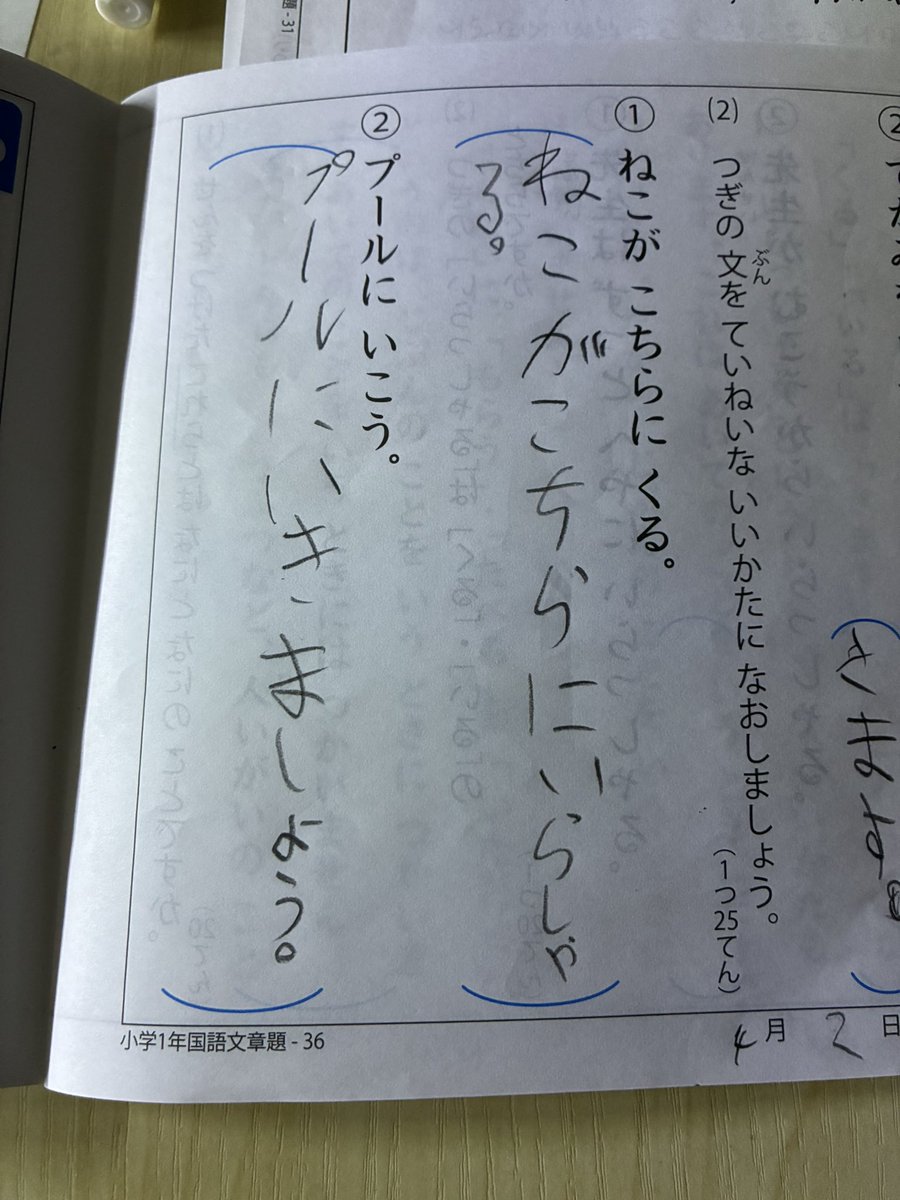 (2) つぎの文をていねいな いいかたに なおしましょう。
ぶん
(1つ25てん)
① ねこが こちらに くる。
ねこがこちらにいらしゃ
る。
② プールに いこう。
プールにいきましょう。
きます。
小学1年国語文章題 - 36
4月 2日